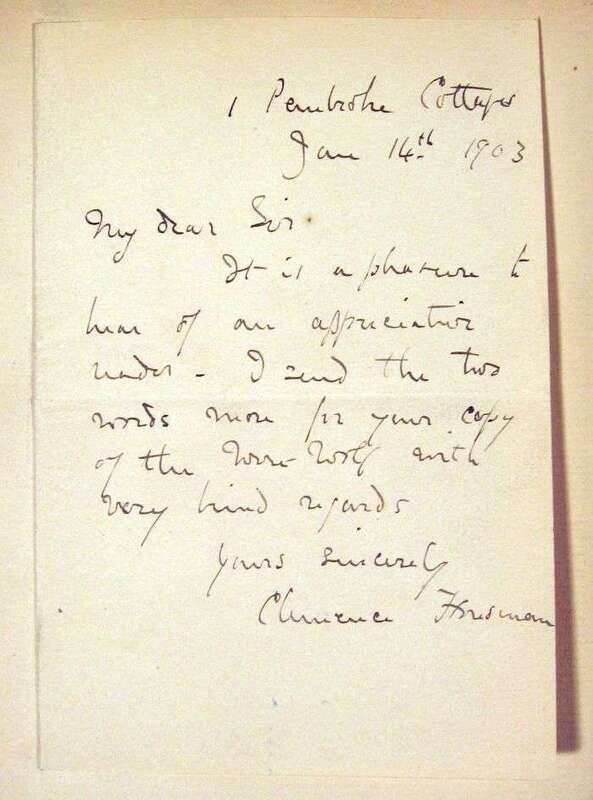 1 Pembroke Cottages
Jan 14th 1903
My dear Sir
It is a pleasure to
hear of an appreciative
reader - I send the two
words more for your copy
of the Were-Wolf with
very kind regards
Yours sincerely
Clemence Housman